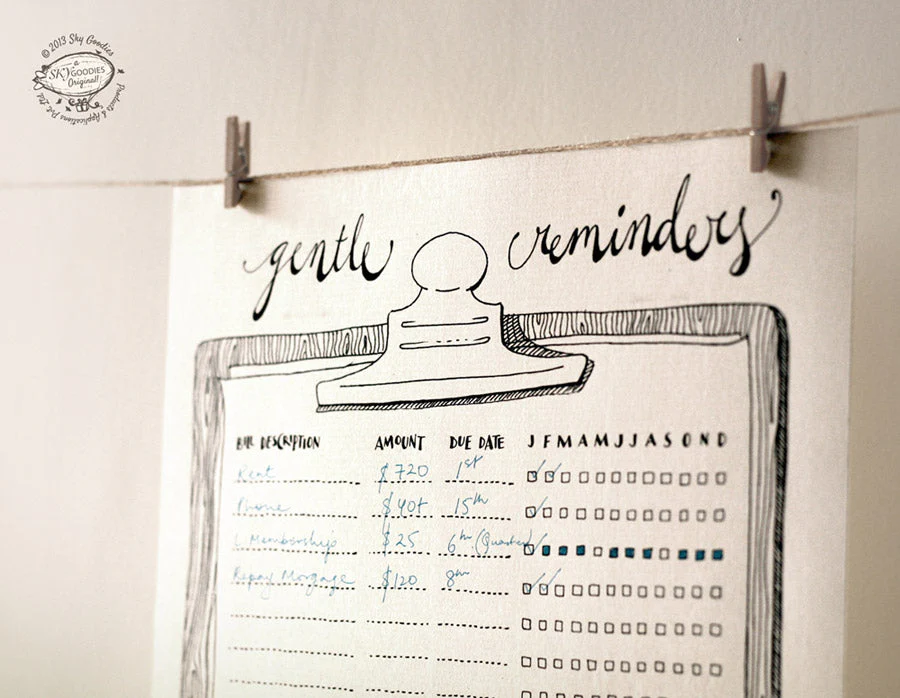 © 2013 Sky Goodies
a
SKYGOODIES
Original!
Products & Applications Pvt. Ltd.
gentle reminders
BILL DESCRIPTION AMOUNT DUE DATE J F M A M J J A S O N D
Rent $720 1st
Phone $40+ 15th
L. Membership $25 6th (Quarter)
Repay Morgage $120 8th